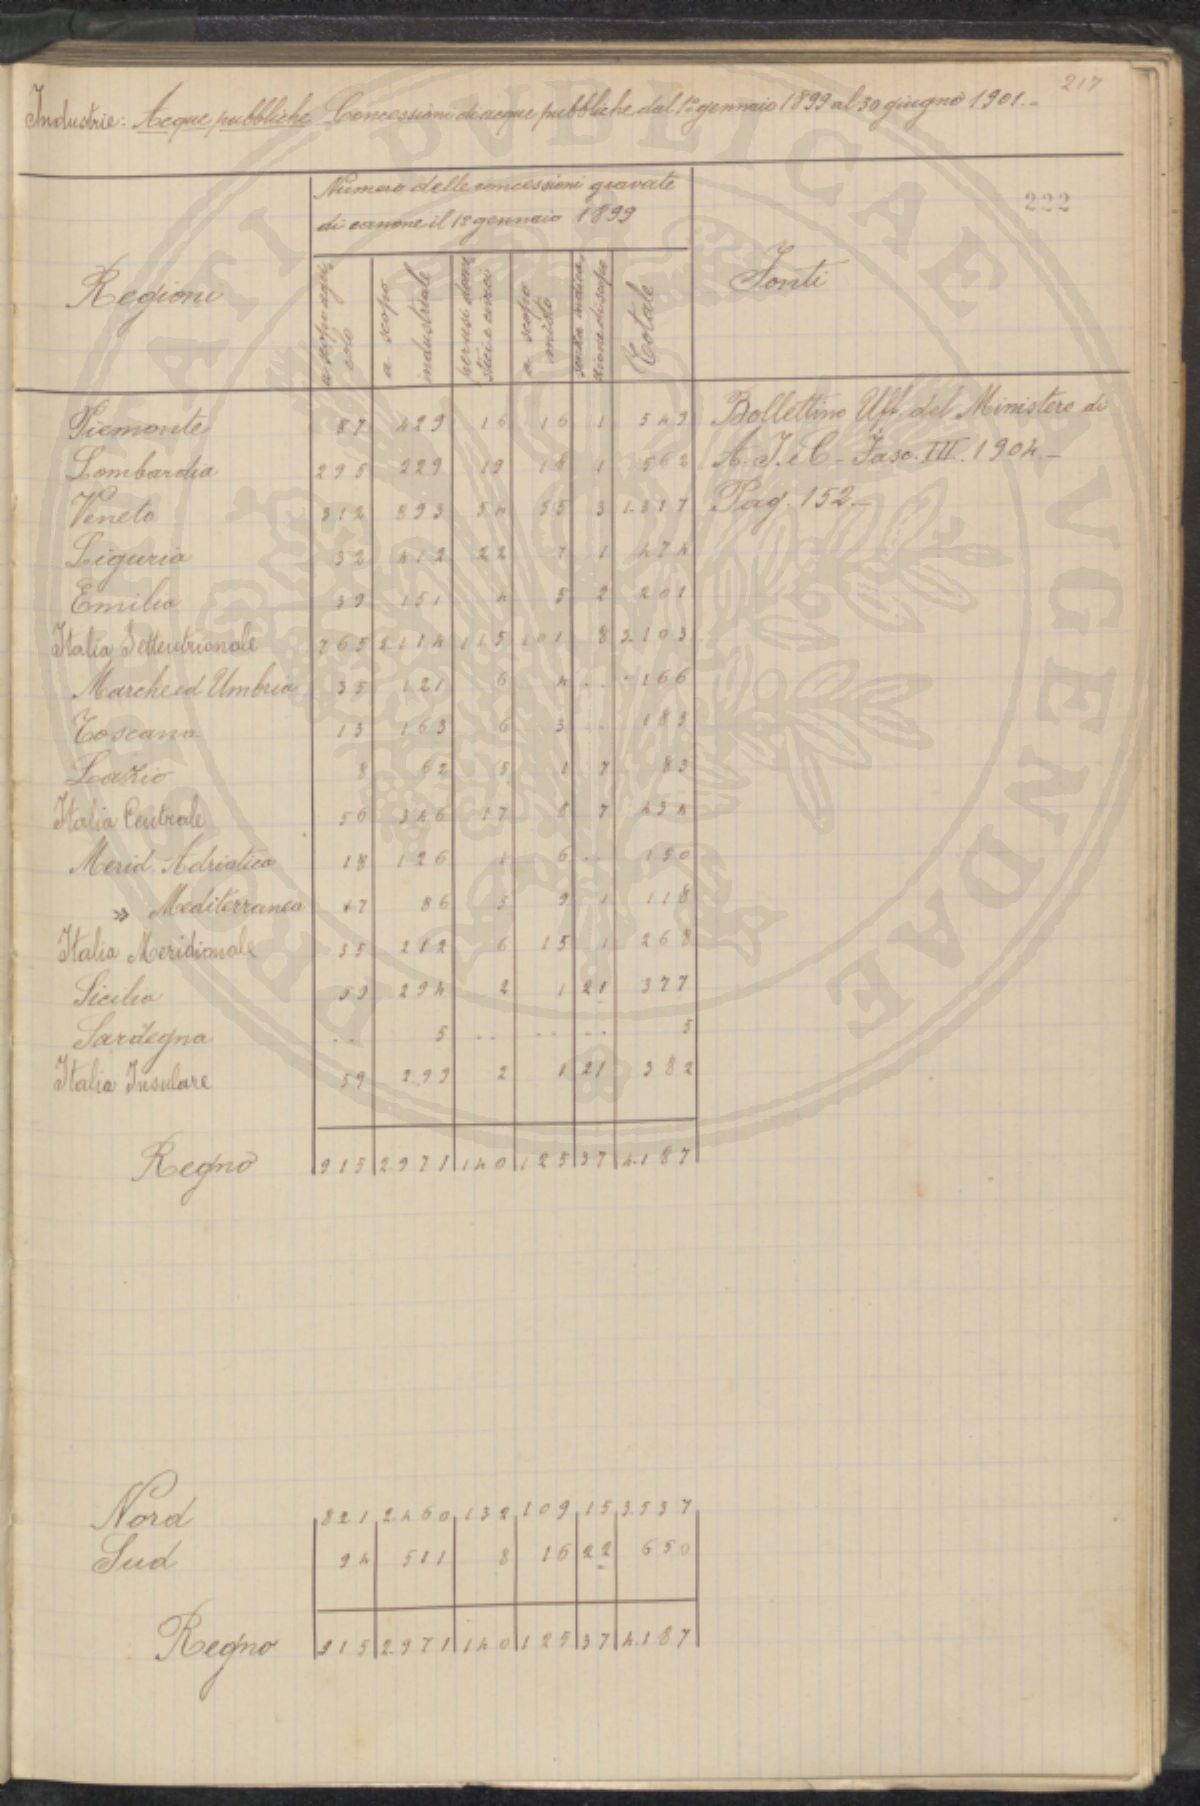 217
Industrie: Acque pubbliche Concessioni di acque pubbliche dal 1º gennaio 1899 al 30 giugno 1901.-
222
Numero delle concessioni gravate
di canone il 1º gennaio 1899
Regioni
a scopo agri
colo
a scopo
industriale
per usi dome
stici e civici
a scopo
misto
senza indica-
zione di scopo
Totale
Fonti
Piemonte 87 429 16 16 1 549
Lombardia 295 229 19 18 1 562
Veneto 312 893 54 55 3 1.317
Liguria 32 412 22 7 1 474
Emilia 39 151 4 5 2 201
Italia Settentrionale 765 2114 115 101 8 3.103
Marche ed Umbria 35 121 6 4 .. 166
Toscana 13 163 6 3 .. 185
Lazio 8 62 5 1 7 83
Italia Centrale 56 346 17 8 7 434
Merid. Adriatica 18 126 1 6 .. 150
» Mediterranea 17 86 5 9 1 118
Italia Meridionale 35 212 6 15 1 268
Sicilia 59 294 2 1 21 377
Sardegna .. 5 .. .. .. 5
Italia Insulare 59 299 2 1 21 382
Regno 915 2971 140 125 37 4.187
Bollettino Uff. del Ministero di
A. I. e C - Fasc. III. 1904.-
Pag. 152.-
Nord 821 2.460 132 109 15 3.537
Sud 94 511 8 16 22 650
Regno 915 2.971 140 125 37 4.187
PUBLICAE
AUGENDAE